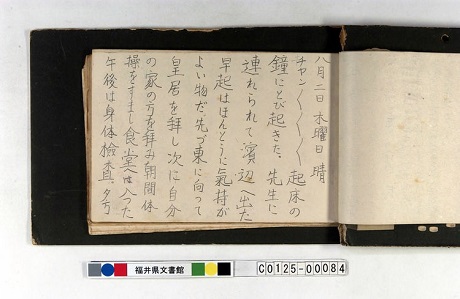 八月二日 木曜日 晴
チャン〳〵〳〵〳〵 起床の
鐘にとび起きた、先生に
連れられて濱辺へ出た
早起はほんとうに気持が
よい物だ。先づ東に向って
皇居を拝し次に自分
の家の方を拝み朝間体
操をすまし食堂へは入った
午後は身体檢査、夕方
福井県文書館
C0125-00084